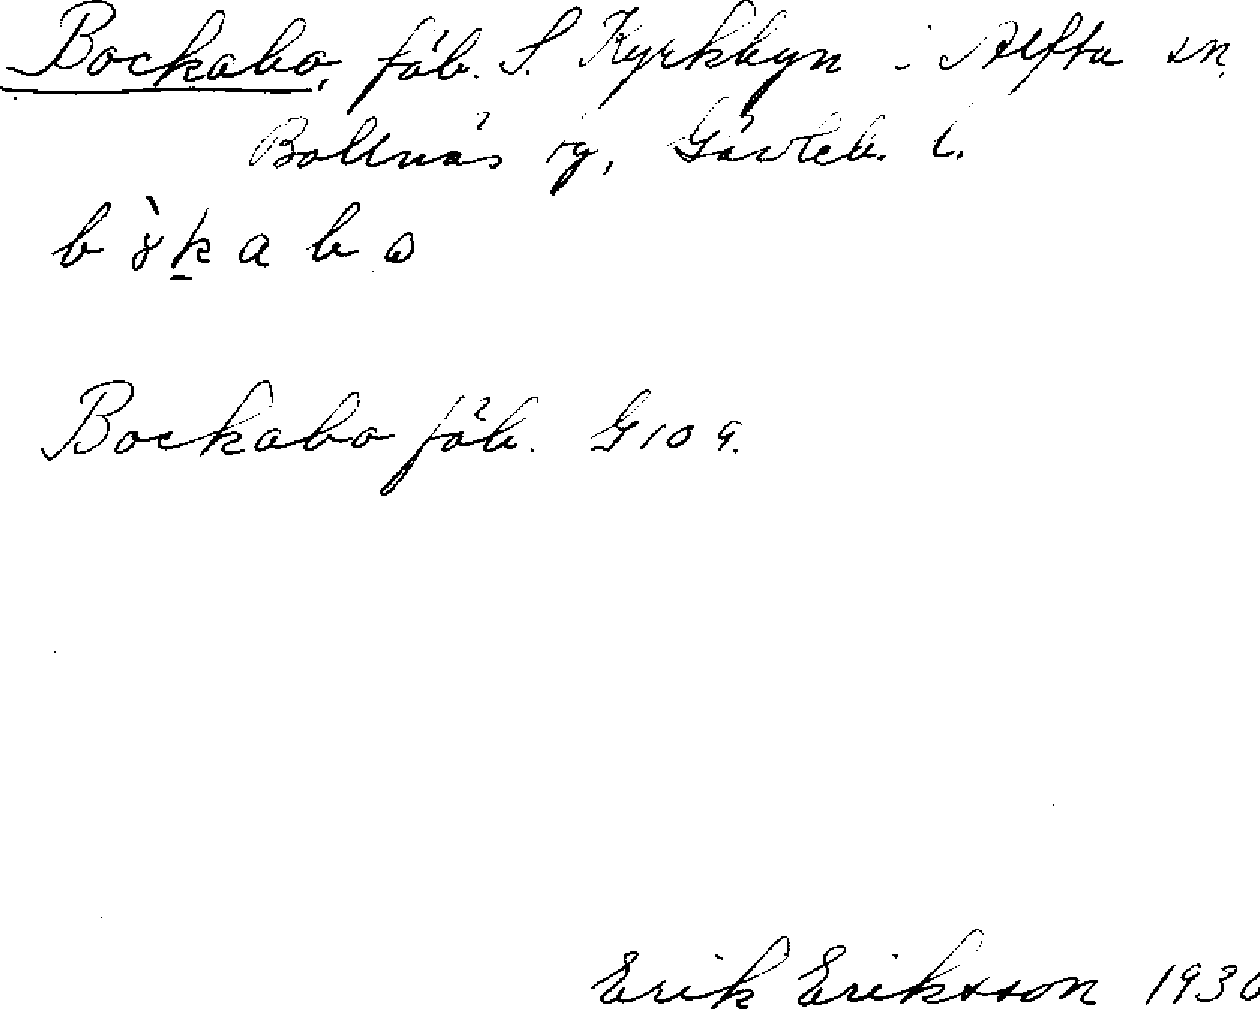 Bockabo, fäb. S. Kyrkbyn i Alfta sn.
Bollnäs tg, Gävleb. l.
bɤ̀k̠abɷ
Bockabo fäb. G 10 9.
Erik Eriksson 1930